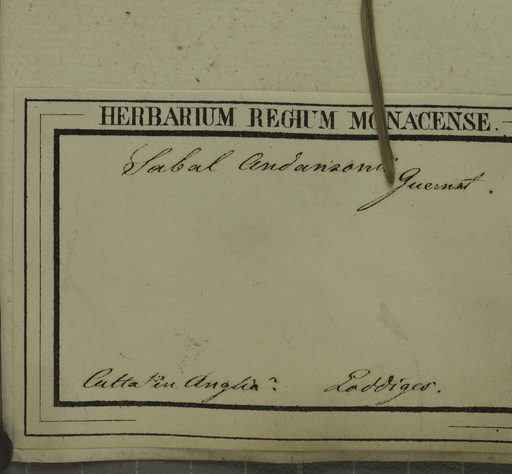 HERBARIUM REGIUM MONACENSE.
Sabal Andansonii
Guernst.
Culta in Anglia. Loddiges.